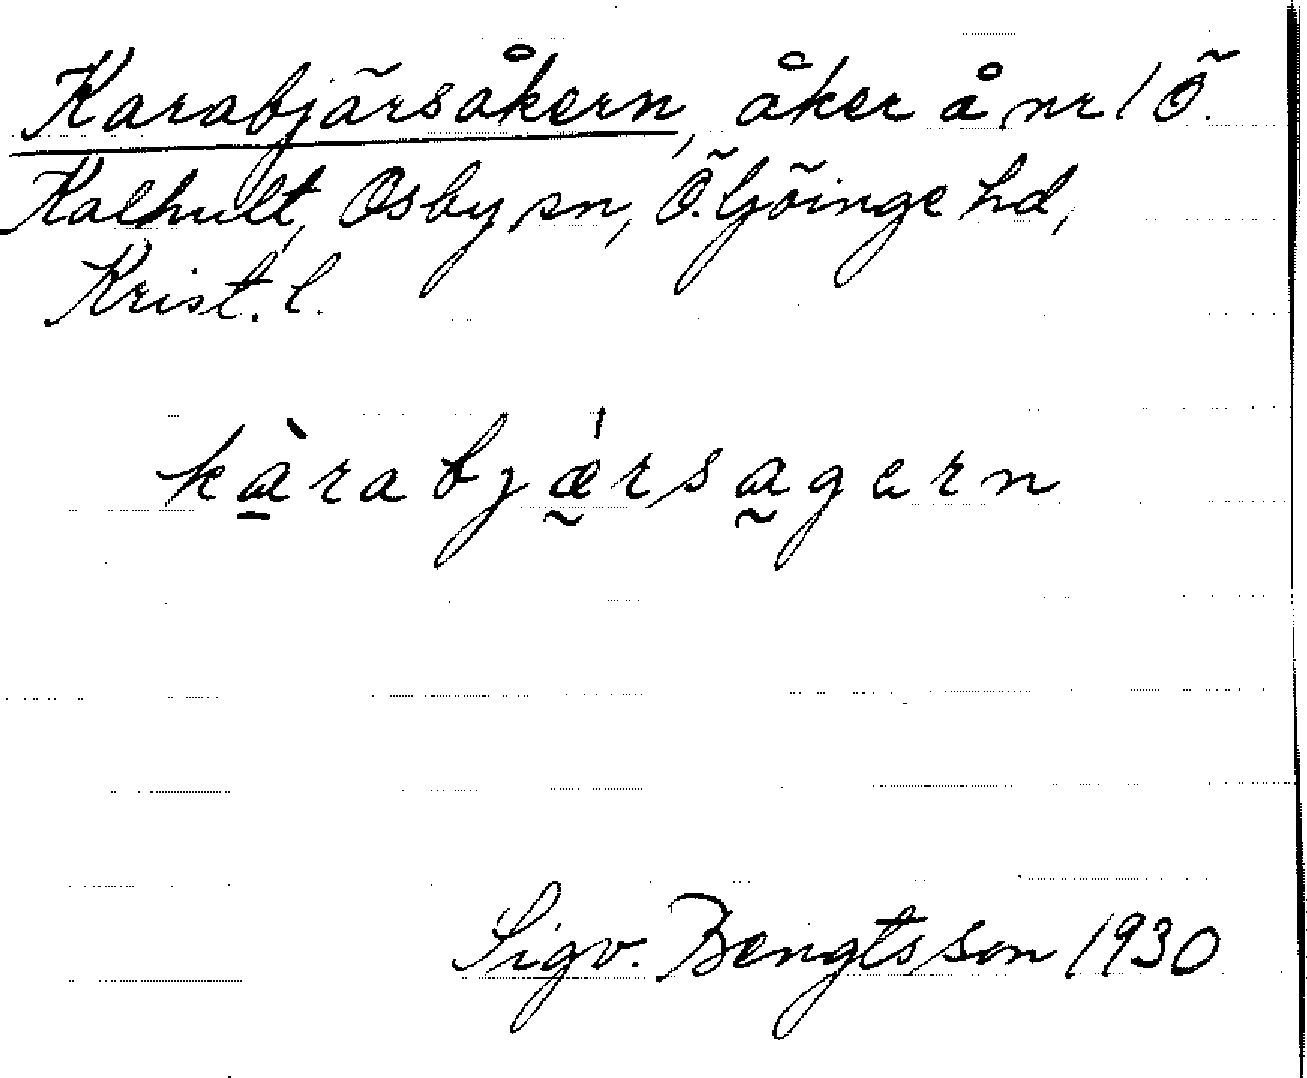 Karabjärsåkern, åker å nr 1 Ö.
Kalhult, Osby sn, Ö. Göinge hd,
Krist. l.
kàrabjǽ̰rsa̰gern
Sigv. Bengtsson 1930